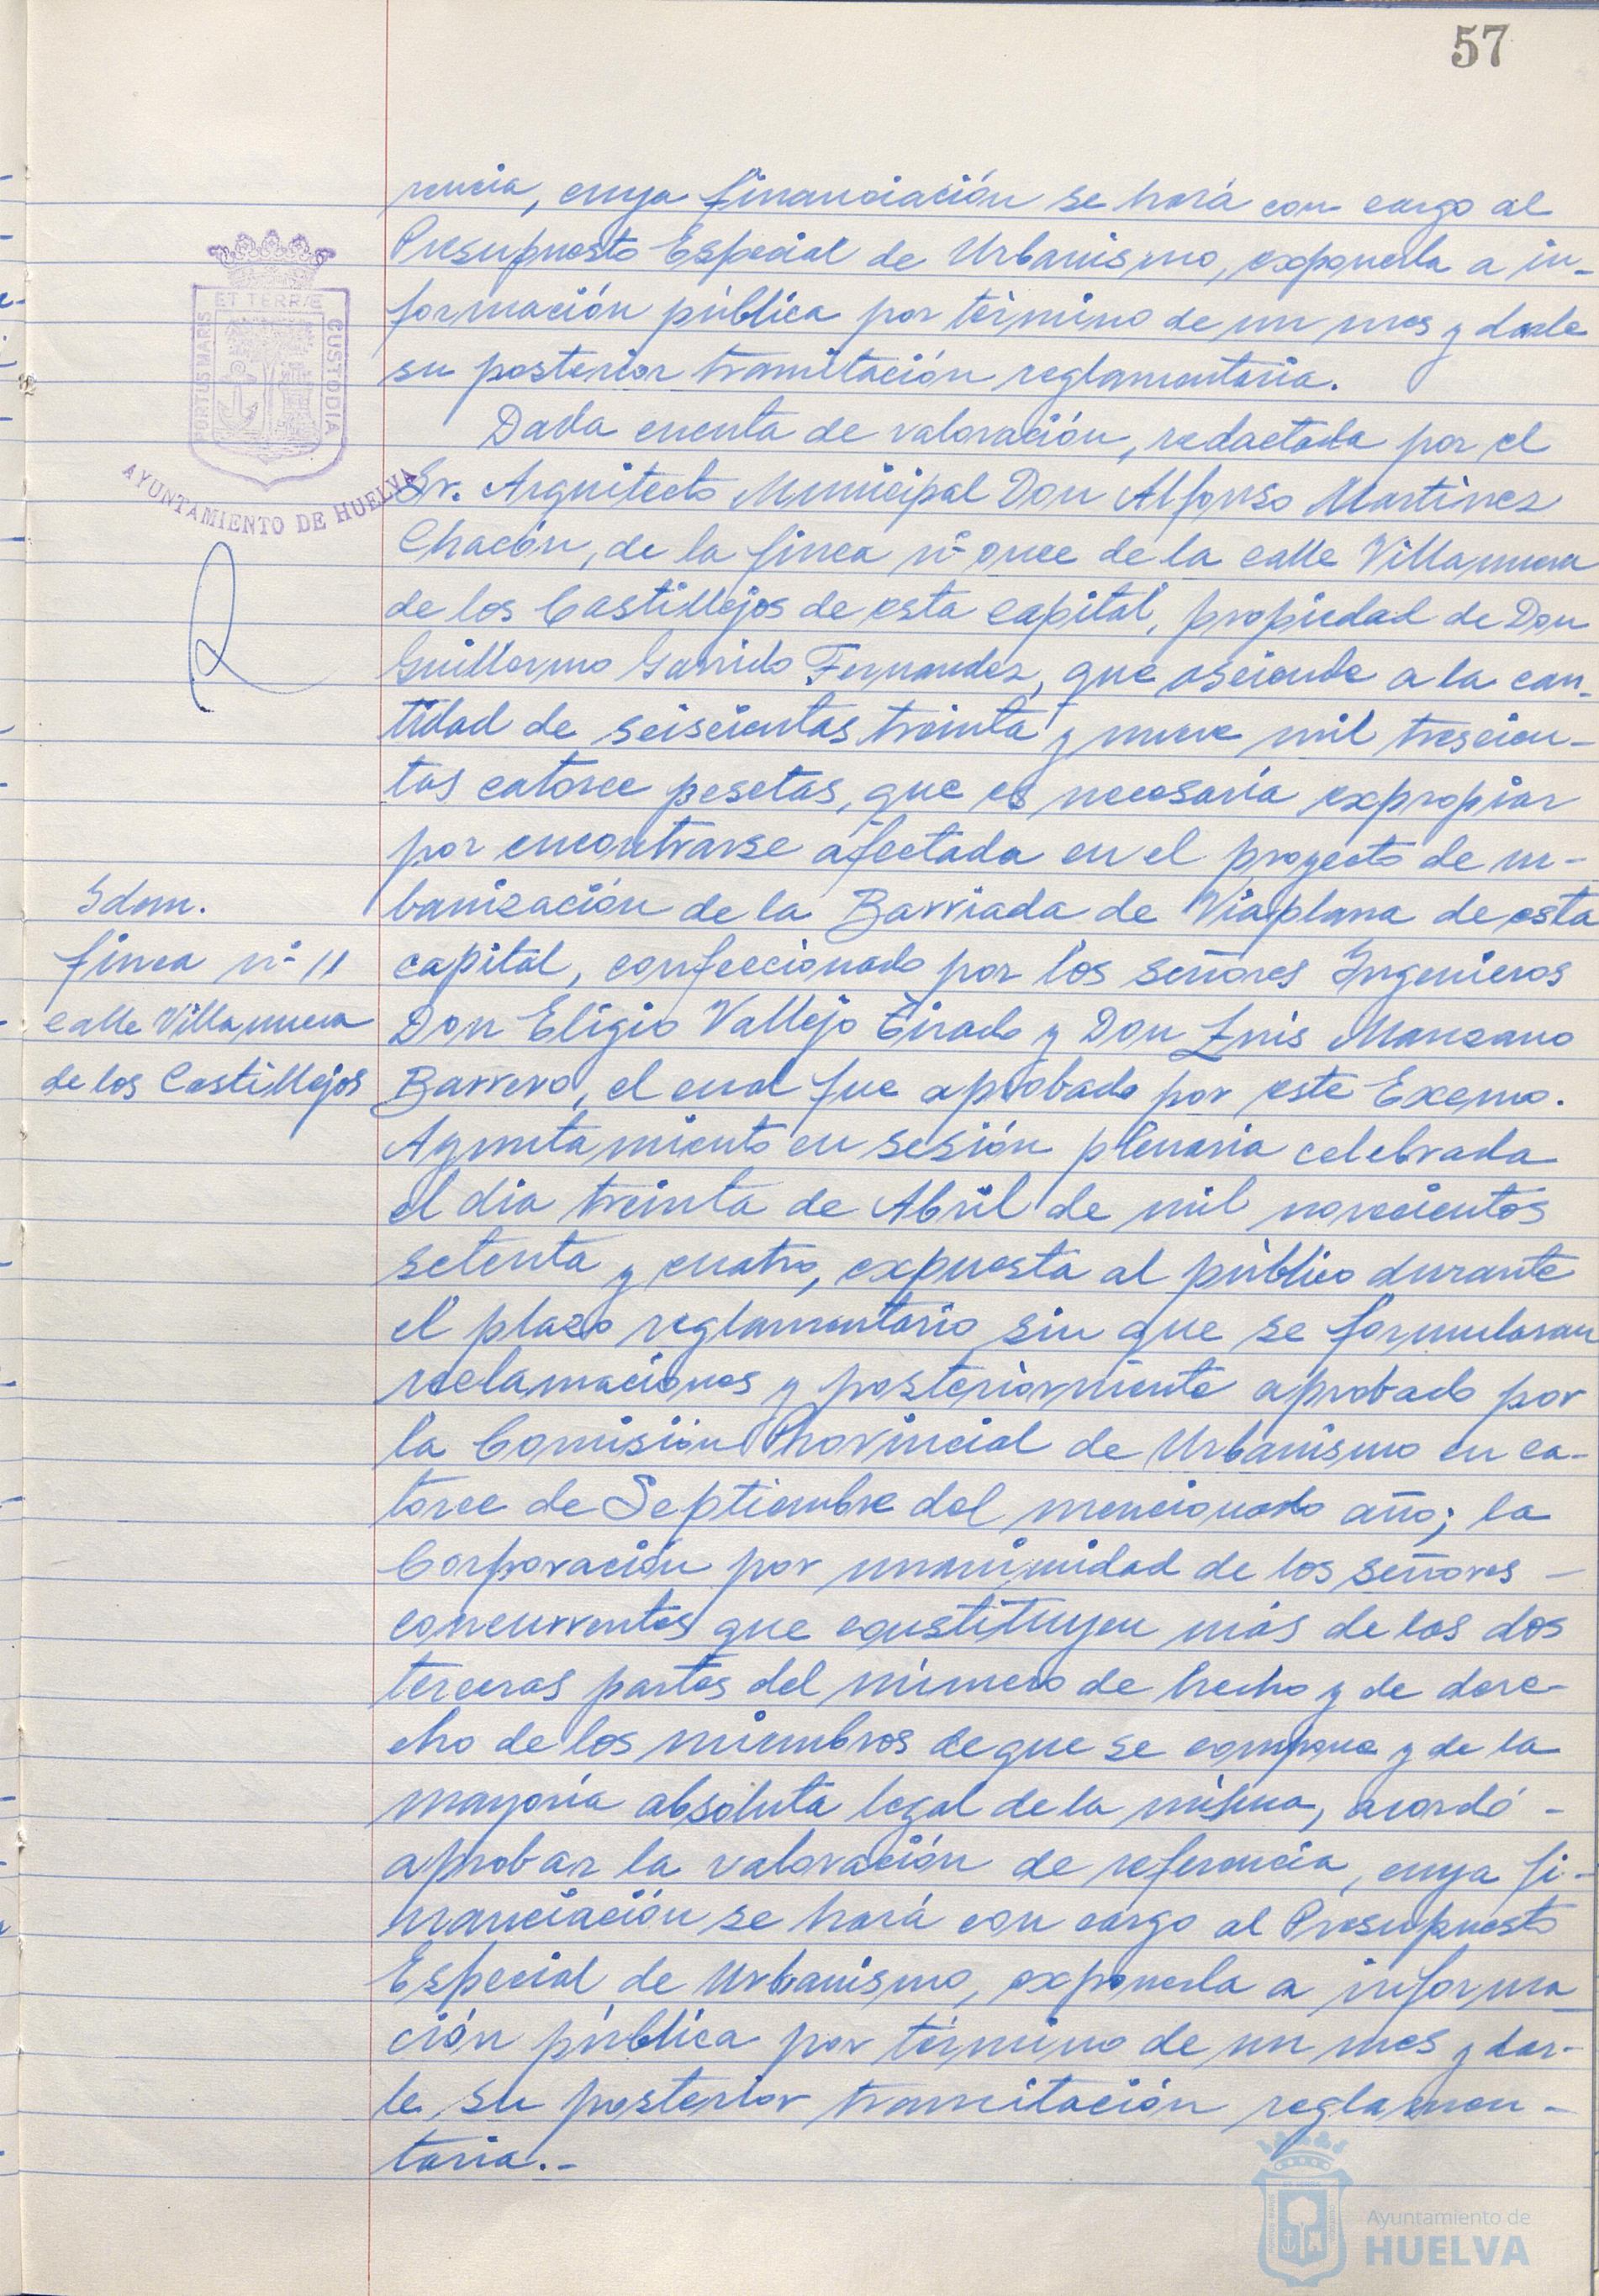 57
rencia, cuya financiación se hará con cargo al
Presupuesto Especial de Urbanismo, exponerla a in-
formación pública por término de un mes y darle
su posterior tramitación reglamentaria.
ET TERRÆ
PORTUS MARIS
CUSTODIA
AYUNTAMIENTO DE HUELVA
Dada cuenta de valoración, redactada por el
Sr. Arquitecto Municipal Don Alfonso Martinez
Chacón, de la finca nº once de la calle Villanueva
de los Castillejos de esta capital, propiedad de Don
Guillermo Garrido Fernandez, que asciende a la can-
tidad de seiscientas treinta y nueve mil trescien-
tas catorce pesetas, que es necesaria expropiar
por encontrarse afectada en el proyecto de ur-
banización de la Barriada de Viaplana de esta
capital, confeccionado por los señores Ingenieros
Don Eligio Vallejo Tirado y Don Luis Manzano
Barrero, el cual fue aprobado por este Excmo.
Ayuntamiento en sesión plenaria celebrada
el dia treinta de Abril de mil novecientos
setenta y cuatro, expuesta al público durante
el plazo reglamentario sin que se formularan
reclamaciones y posteriormente aprobado por
la Comisión Provincial de Urbanismo en ca-
torce de Septiembre del mencionado año; la
Corporación por unanimidad de los señores -
concurrentes que constituyen más de las dos
terceras partes del número de hecho y de dere-
cho de los miembros de que se compone y de la
mayoría absoluta legal de la misma, acordó -
aprobar la valoración de referencia, cuya fi-
nanciación se hará con cargo al Presupuesto
Especial de Urbanismo, exponerla a informa-
ción pública por término de un mes y dar-
le su posterior tramitación reglamen-
taria.-
Idem.
finca nº 11
calle Villanueva
de los Castillejos
Ayuntamiento de
HUELVA